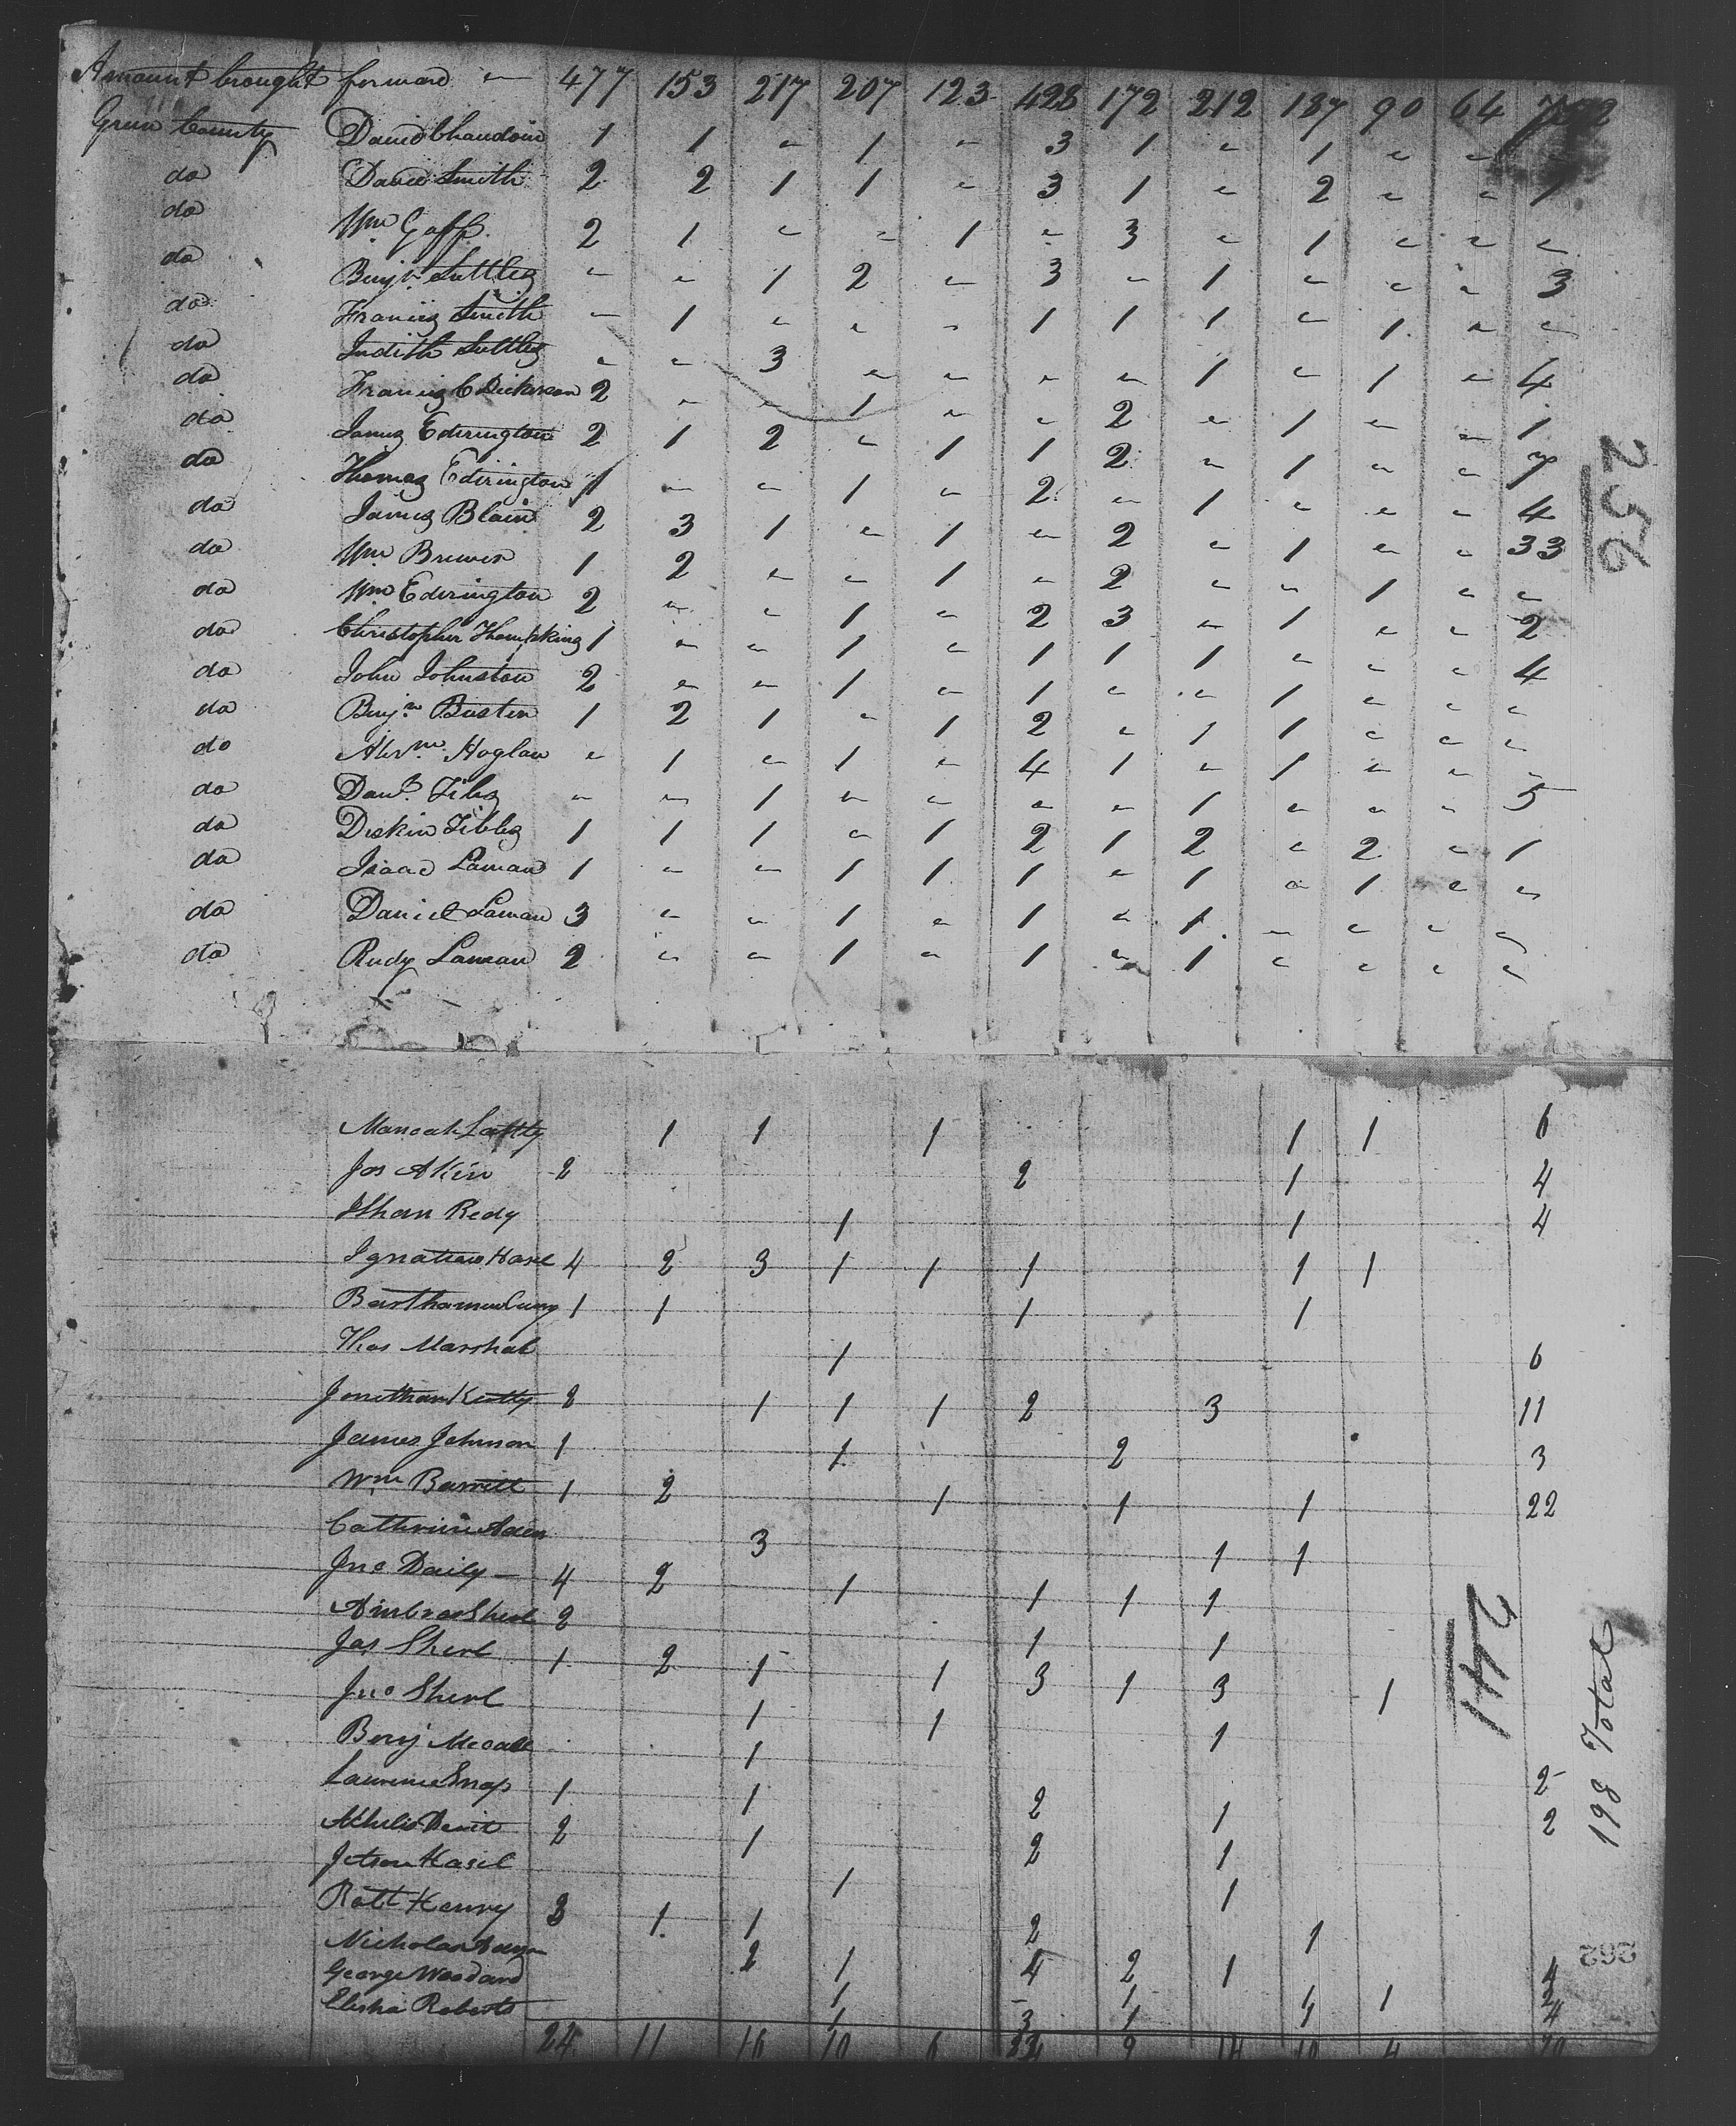 Amount brought forward 〃 477 153 217 207 123 428 172 212 187 90 64
Green County David Chaudoin 1 1 〃 1 〃 3 1 〃 1 〃 〃 〃
do David Smith 2 2 1 1 〃 3 1 〃 2 〃 〃 1
do Wm Goff 2 1 〃 〃 1 〃 3 〃 1 〃 〃 〃
do Benjn Suttles 〃 〃 1 2 〃 3 〃 1 〃 〃 〃 3
do Francis Smith 〃 1 〃 〃 〃 1 1 1 〃 1 〃 〃
do Judith Suttles 〃 〃 3 〃 〃 〃 〃 1 〃 1 〃 4
do Francis C Dickerson 2 〃 〃 1 〃 〃 2 〃 1 〃 〃 1
do James Edrington 2 1 2 〃 1 1 2 〃 1 〃 〃 7
do Thomas Edrington 1 〃 〃 1 〃 2 〃 1 〃 〃 〃 4
do James Blain 2 3 1 〃 1 〃 2 〃 1 〃 〃 33
do Wm Brewer 1 2 〃 〃 1 〃 2 〃 〃 1 〃 〃
do Wm Edrington 2 〃 〃 1 〃 2 3 〃 1 〃 〃 2
do Christopher Thompkins 1 〃 〃 1 〃 1 1 1 〃 〃 〃 4
do John Johnston 2 〃 〃 1 〃 1 〃 〃 1 〃 〃 〃
do Benjn Buster 1 2 1 〃 1 2 〃 1 1 〃 〃 〃
do Abrm Hoglan 〃 1 〃 1 〃 4 1 〃 1 〃 〃 〃
do Danl 〃 〃 1 〃 〃 〃 〃 1 〃 〃 〃 5
do Diskin Tibbs 1 1 1 〃 1 2 1 2 〃 2 〃 1
do Isaac Laman 1 〃 〃 1 1 1 〃 1 〃 1 〃 〃
do Daniel Laman 3 〃 〃 1 〃 1 〃 1 〃 〃 〃 〃
do Rudy Laman 2 〃 〃 1 〃 1 〃 1 〃 〃 〃 〃
256
Manoah 1 1 1 1 1 6
Jos Akin 2 2 1 4
Redy 1 1 4
Ignatious 4 2 3 1 1 1 1 1
1 1 1 1
Thos Marshal 1 6
Jonathan 2 1 1 1 2 3 11
James Johnson 1 1 2 3
Wm Barrett 1 2 1 1 1 22
Cathrine 3 1 1
Jno Daily 4 2 1 1 1 1
Ambros Sherl 2 1 1
Jas Sherl 1 2 1 1 3 1 3 1
Jno Sherl 1 1 1
Benj 1
Laurence 1 1 2 1 2
2 1 2 1 2
1 1
Robt Henry 3 1 1 2 1
Nicholas 2 1 4 2 1 4
George Woodard 1 1 1 1 2
Elisha Roberts 1 3 1 1 4
24 11 16 10 6 9 14 10 4 70
142
198 Total
262